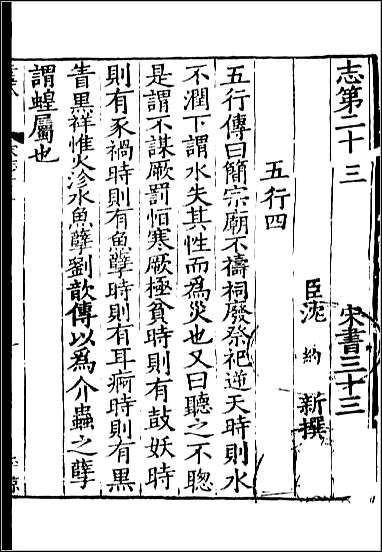 志第二十三 宋書三十三
臣沈約新撰
五行四
五行傳曰簡宗廟不禱祠廢祭祀逆天時則水
不潤下謂水失其性而為災也又曰聽之不聦
是謂不謀厥罰恒寒厥極貧時則有鼓妖時
則有魚孽時則有豕禍時則有耳痾時則有黒
眚黒祥惟火沴水魚孽劉歆傳以為介蟲之孽
謂蝗屬也